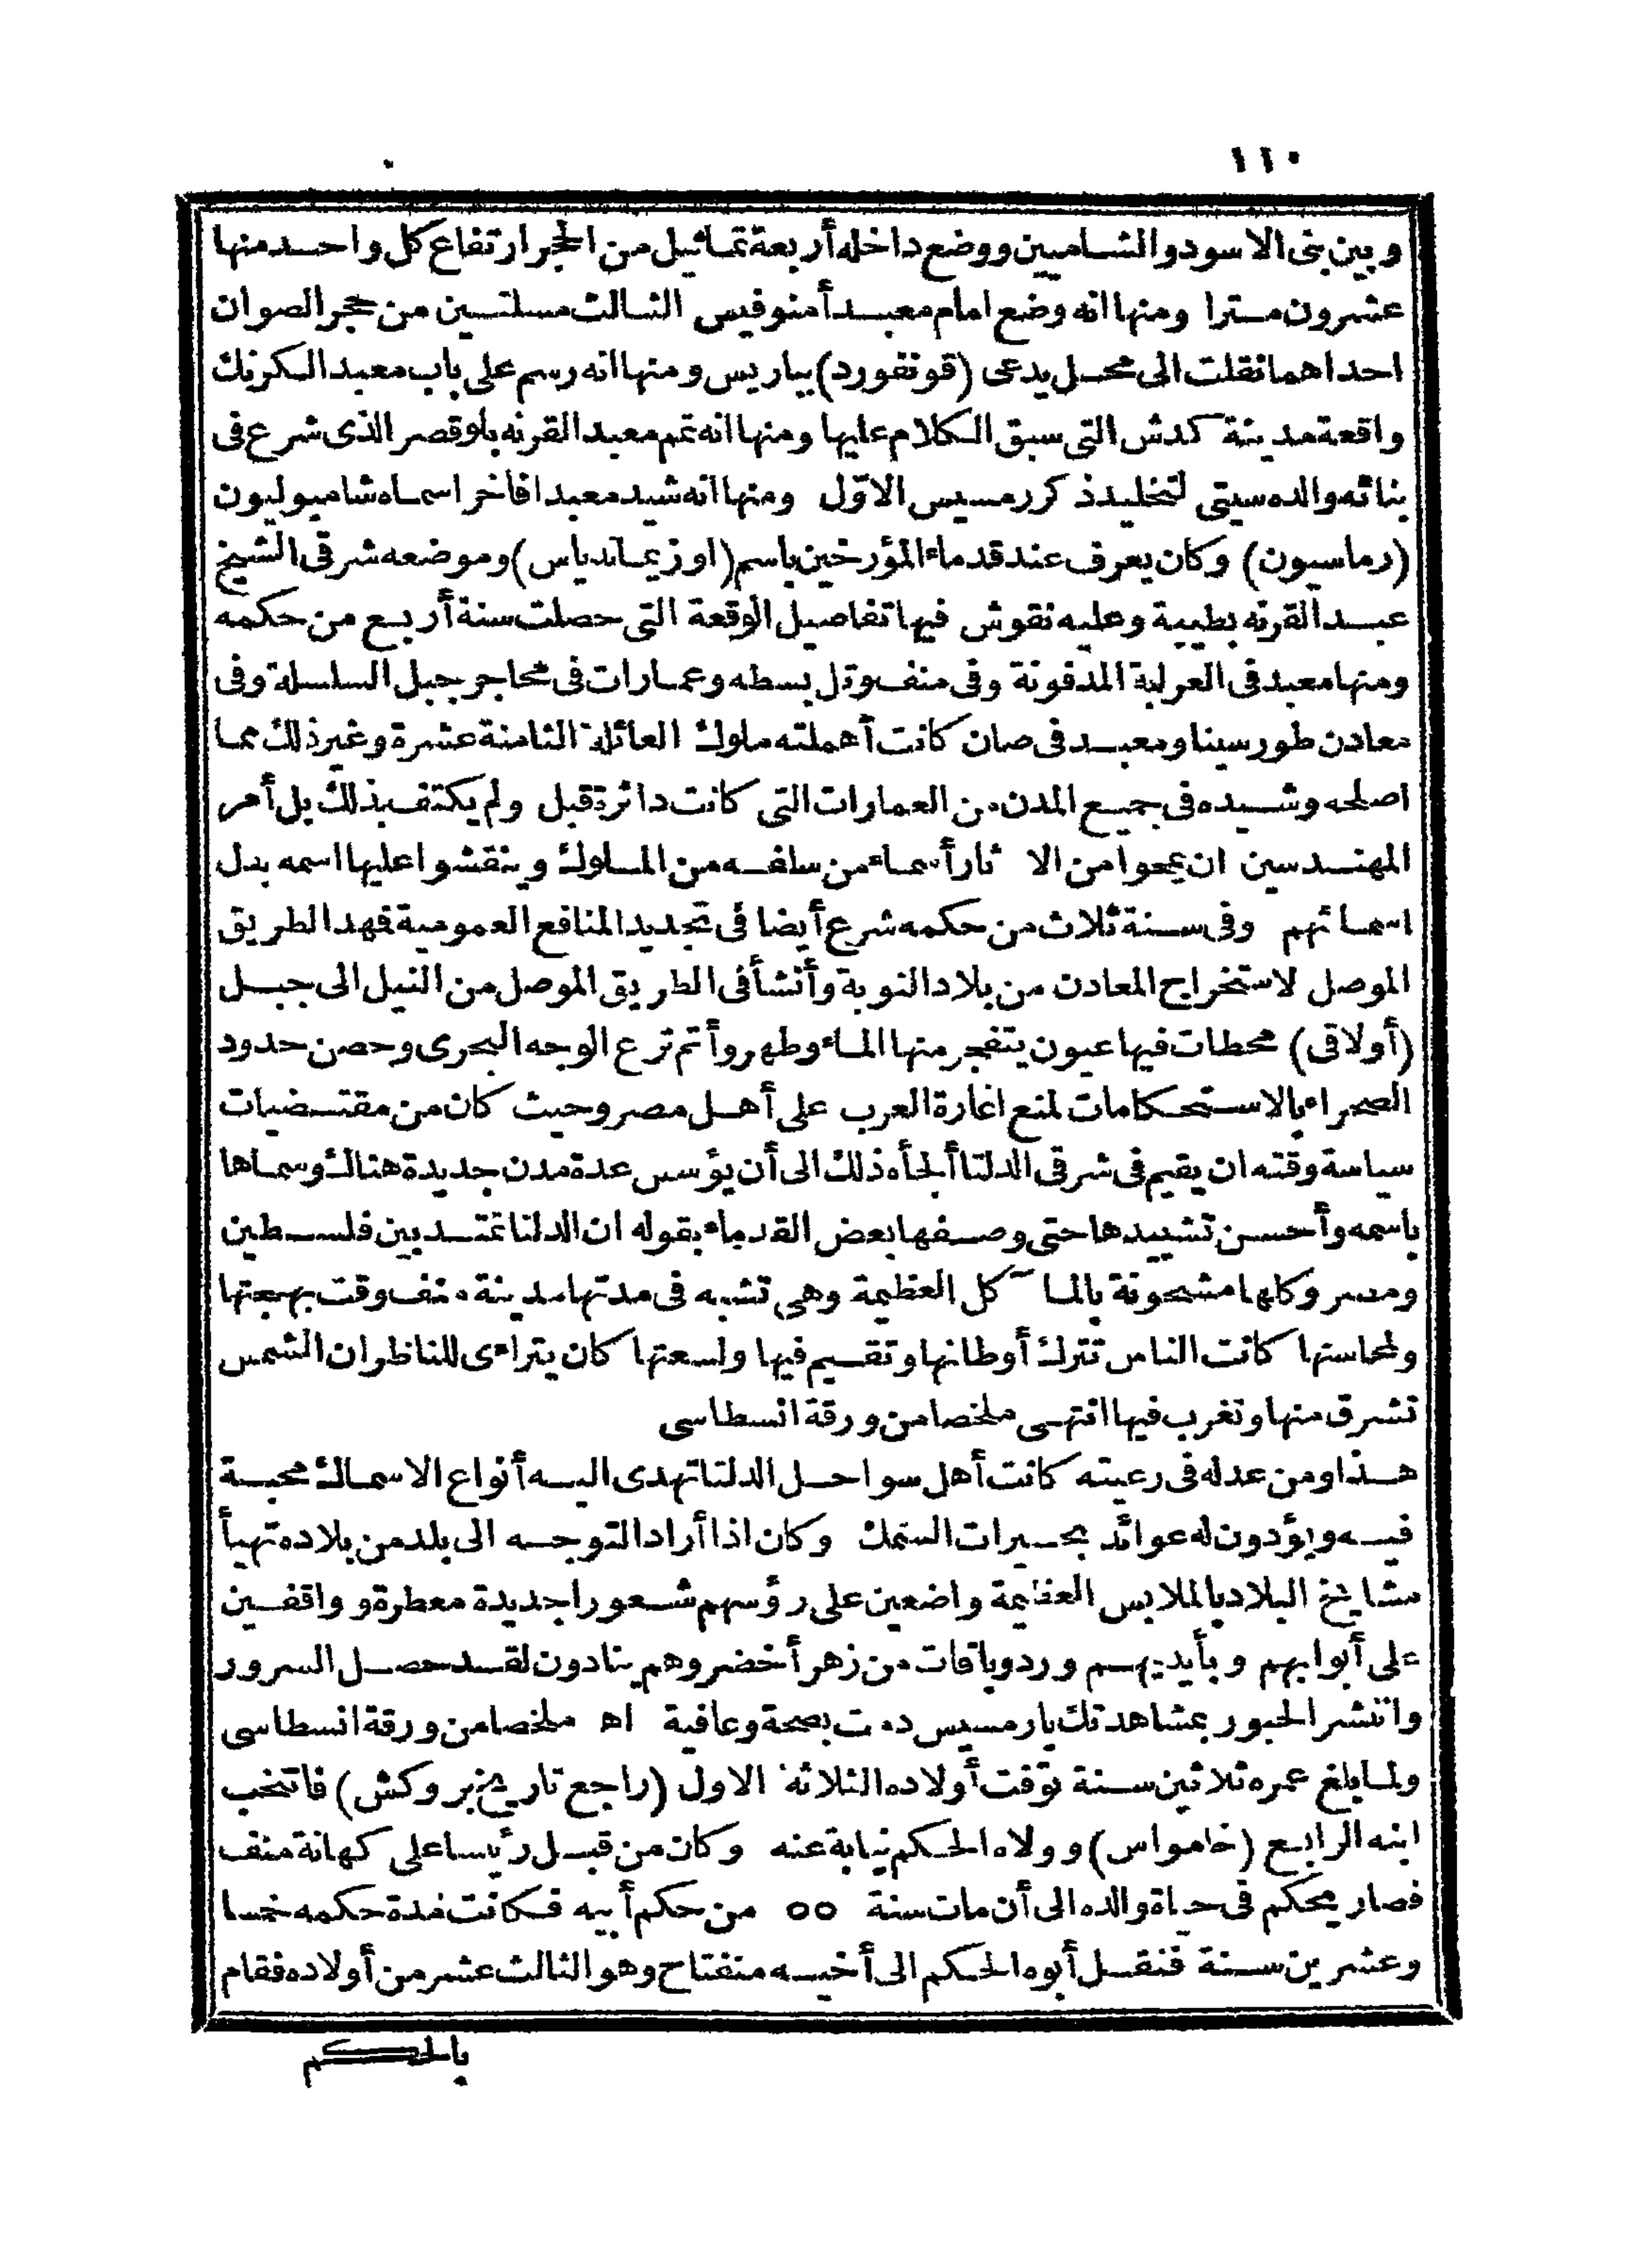 ١١٠
وبين بنى الاسود والشاميين ووضع داخله أربعة تماثيل من الحجر ارتفاع كل واحد منها
عشرون مترا ومنها انه وضع امام معبد أمنوفيس الثالث مسلتين من حجر الصوان
احداهما نقلت الى محل يدعى (قونقورد) بباريس ومنها انه رسم على باب معبد الكرنك
واقعة مدينة كدش التى سبق الكلام عليها ومنها انه تمم معبد القرنه بلوقصر الذى شرع فى
بنائه والده سيتى لتخليد ذكر رمسيس الاول ومنها انه شيد معبدا فاخرا سماه شامبوليون
(رماسيون) وكان يعرف عند قدماء المؤرخين باسم (اوزيماندياس) وموضعه شرقى الشيخ
عبد القرنه بطيبة وعليه نقوش فيها تفاصيل الوقعة التى حصلت سنة أربع من حكمه
ومنها معبد فى العرابة المدفونة وفى منف وتل بسطه وعمارات فى محاجر جبل السلسلة وفى
معادن طور سينا ومعبد فى صان كانت أهملته ملوك العائلة الثامنة عشرة وغير ذلك مما
اصلحه وشيده فى جميع المدن من العمارات التى كانت داثرة قبل ولم يكتف بذلك بل أمر
المهندسين ان يمحوا من الآثار أسماء من سلفه من الملوك وينقشوا عليها اسمه بدل
اسمائهم وفى سنة ثلاث من حكمه شرع أيضا فى تجديد المنافع العمومية فهد الطريق
الموصل لاستخراج المعادن من بلاد النوبة وأنشأ فى الطريق الموصل من النيل الى جبل
(أولاقى) محطات فيها عيون يتفجر منها الماء وطهر وأتم ترع الوجه البحرى وحصن حدود
الصحراء بالاستحكامات لمنع اغارة العرب على أهل مصر وحيث كان من مقتضيات
سياسة وقته ان يقيم فى شرقى الدلتا ألجأه ذلك الى أن يؤسس عدة مدن جديدة هنالك وسماها
باسمه وأحسن تشييدها حتى وصفها بعض القدماء بقوله ان الدلتا تمتد بين فلسطين
ومصر وكلها مشحونة بالمآكل العظيمة وهى تشبه فى مدتها مدينة منف وقت بهجتها
ولمحاسنها كانت الناس تترك أوطانها وتقيم فيها ولسعتها كان يتراءى للناظر ان الشمس
تشرق منها وتغرب فيها انتهى ملخصا من ورقة انسطاسى
هذا ومن عدله فى رعيته كانت أهل سواحل الدلتا تهدى اليه أنواع الاسماك محبة
فيه ويؤدون له عوائد بحيرات السمك وكان اذا أراد التوجه الى بلد من بلاده تهيأ
مشايخ البلاد بالملابس العظيمة واضعين على رؤسهم شعورا جديدة معطرة وواقفين
على أبوابهم وبأيديهم ورد وباقات من زهر أخضر وهم ينادون لقد حصل السرور
وانتشر الحبور بمشاهدتك يا رمسيس دمت بصحة وعافية اه ملخصا من ورقة انسطاسى
ولما بلغ عمره ثلاثين سنة توفت أولاده الثلاثة الاول (راجع تاريخ بروكش) فانتخب
ابنه الرابع (خامواس) وولاه الحكم نيابة عنه وكان من قبل رئيسا على كهانة منف
فصار يحكم فى حياة والده الى أن مات سنة ٥٥ من حكم أبيه فكانت مدة حكمه خمسا
وعشرين سنة فنقل أبوه الحكم الى أخيه منفتاح وهو الثالث عشر من أولاده فقام
بالحكم